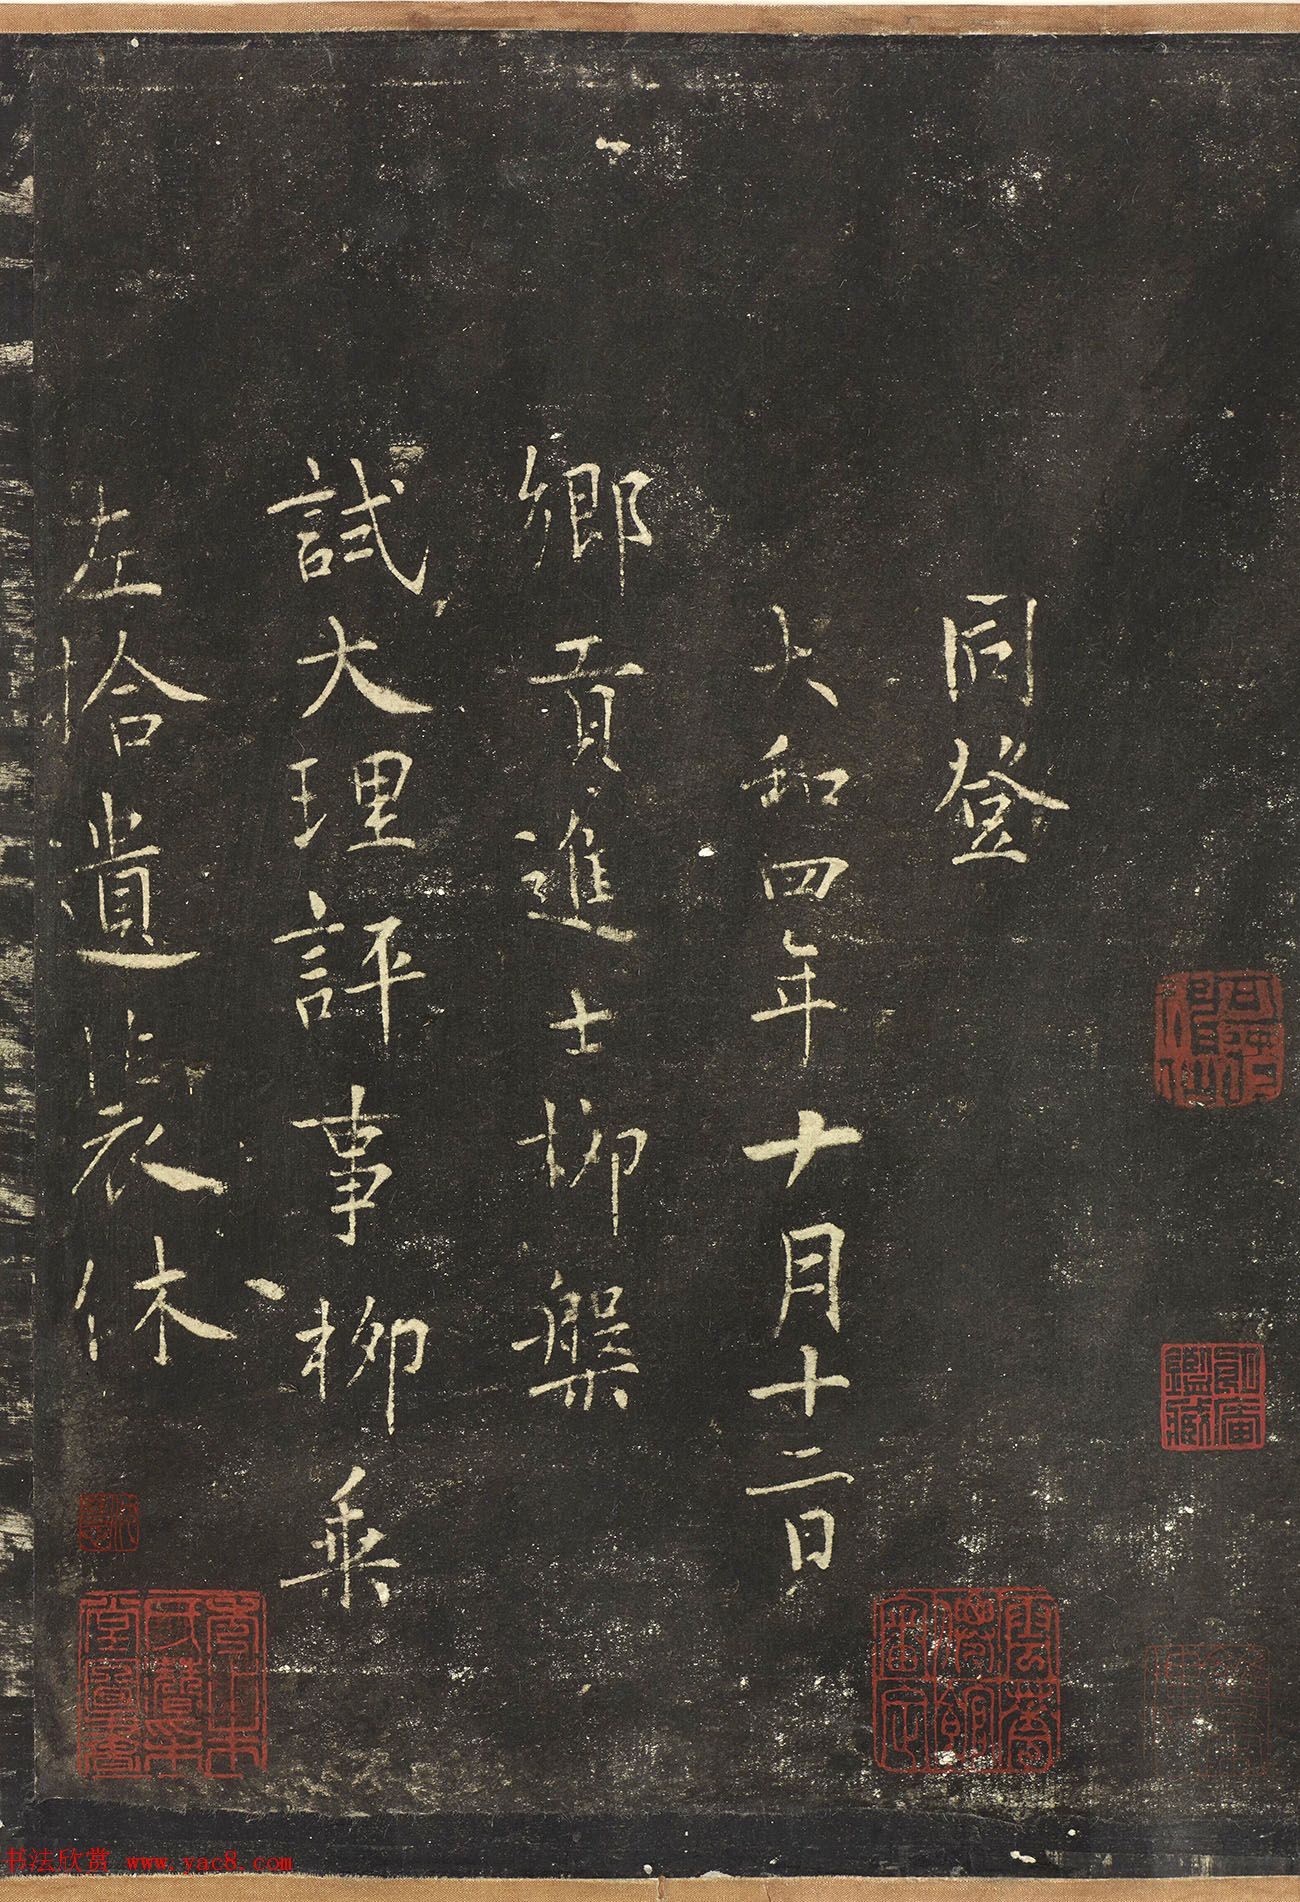 同登
大和四年十月十二日
鄉貢進士柳槃
試大理評事柳乘
左拾遺裴休
书法欣赏 www.yac8.com